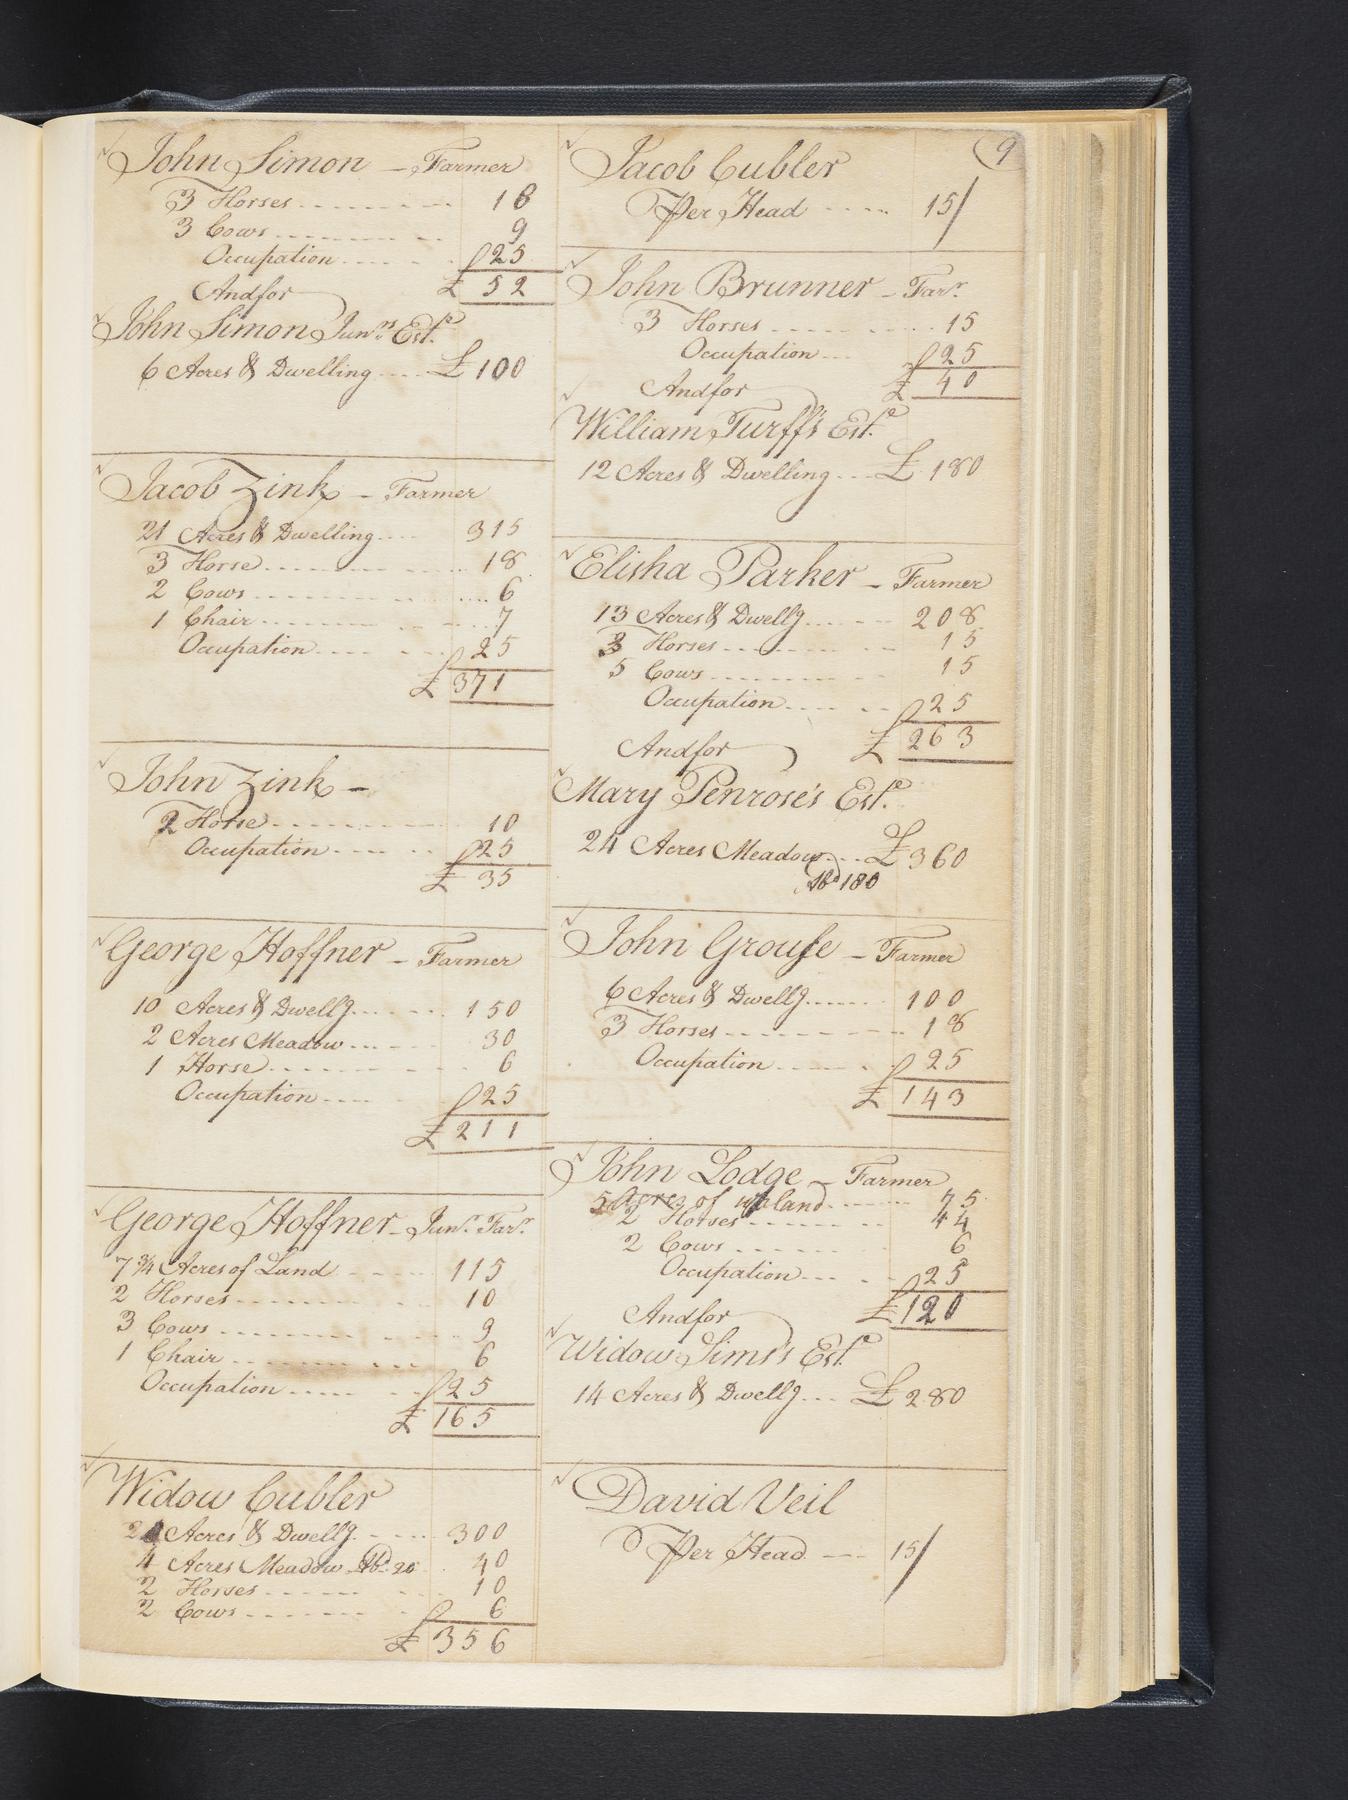 9
John Simon - Farmer
3 Horses 18
3 Cows 9
Occupation 25
£ 52
Andfor
John Simon Junrs Este
6 Acres & Dwelling £ 100
Jacob Zink - Farmer
21 Acres & Dwelling 315
3 Horse 18
2 Cows 6
1 Chair 7
Occupation 25
£ 371
John Zink -
2 Horse 10
Occupation 25
£ 35
George Hoffner - Farmer
10 Acres & Dwellg 150
2 Acres Meadow 30
1 Horse 6
Occupation 25
£ 211
George Hoffner - Junr. Farr.
7 3/4 Acres of Land 115
2 Horses 10
3 Cows 9
1 Chair 6
Occupation 25
£ 165
Widow Cubler
20 Acres & Dwellg 300
4 Acres Meadow 20 40
2 Horses 10
2 Cows 6
£ 356
Jacob Cubler
Per Head 15/
John Brunner - Farr.
3 Horses 15
Occupation 25
£ 40
Andfor
William Turff's Este
12 Acres & Dwelling £ 180
Elisha Parker - Farmer
13 Acres & Dwellg 208
3 Horses 15
5 Cows 15
Occupation 25
£ 263
Andfor
Mary Penrose's Este
24 Acres Meadow £ 360
180
John Grouse - Farmer
6 Acres & Dwellg 100
3 Horses 18
Occupation 25
£ 143
John Lodge - Farmer
5 Acres of upland 75
2 Horses 44
2 Cows 6
Occupation 25
£ 120
Andfor
Widow Sims's Este
14 Acres & Dwellg £ 280
David Veil
Per Head 15/